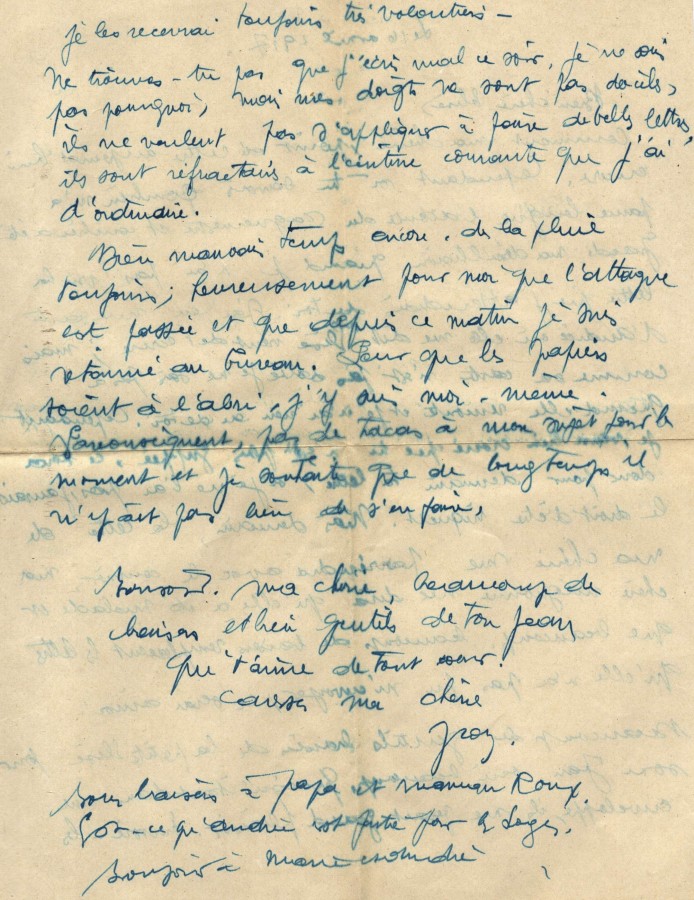 je les recevrai toujours très volontiers –
Ne trouves-tu pas que j'écris mal ce soir, je ne sais
pas pourquoi, mais mes doigts ne sont pas dociles,
ils ne veulent pas s'appliquer à faire de belles lettres,
ils sont réfractaires à l'écriture courante que j'ai
d'ordinaire.
Bien mauvais temps encore, de la pluie
toujours; heureusement pour moi que l'attaque
est passée et que depuis ce matin je suis
retourné au bureau. Pour que les papiers
soient à l'abri, j'y suis moi-même.
Par conséquent, pas de tracas à mon sujet pour le
moment et je souhaite que de longtemps il
n'y ait pas lieu de s'en faire.
Bonsoir. ma chérie beaucoup de
baisers et bien gentils de ton Jean
qui t'aime de tout cœur.
Caresses ma chérie
Bons baisers à papa et maman Roux,
Est-ce qu'andré est pour
Bonjour à Marie et andré